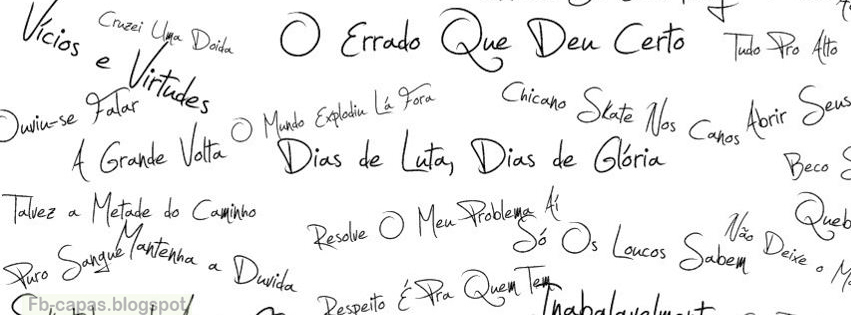 Vícios e Virtudes
Cruzei Uma Doida
O Errado Que Deu Certo
Tudo Pro Alto
Ouviu-se Falar
O Mundo Explodiu Lá Fora
Chicano Skate Nos Canos
Abrir Seus
A Grande Volta
Dias de Luta, Dias de Glória
Beco
Talvez a Metade do Caminho
Resolve O Meu Problema Aí
Só Os Loucos Sabem
Não Deixe o
Puro Sangue
Mantenha a Duvida
Respeito É Pra Quem Tem
Fb-capas.blogspot